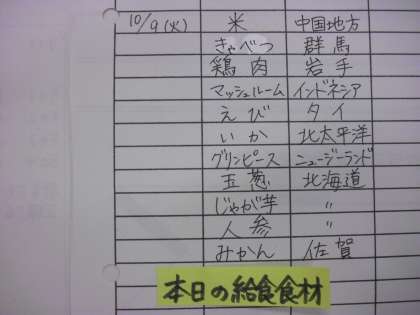 10/9(火) 米 中国地方
きゃべつ 群馬
鶏肉 岩手
マッシュルーム インドネシア
えび タイ
いか 北太平洋
グリンピース ニュージーランド
玉葱 北海道
じゃが芋 〃
人参 〃
みかん 佐賀
本日の給食食材